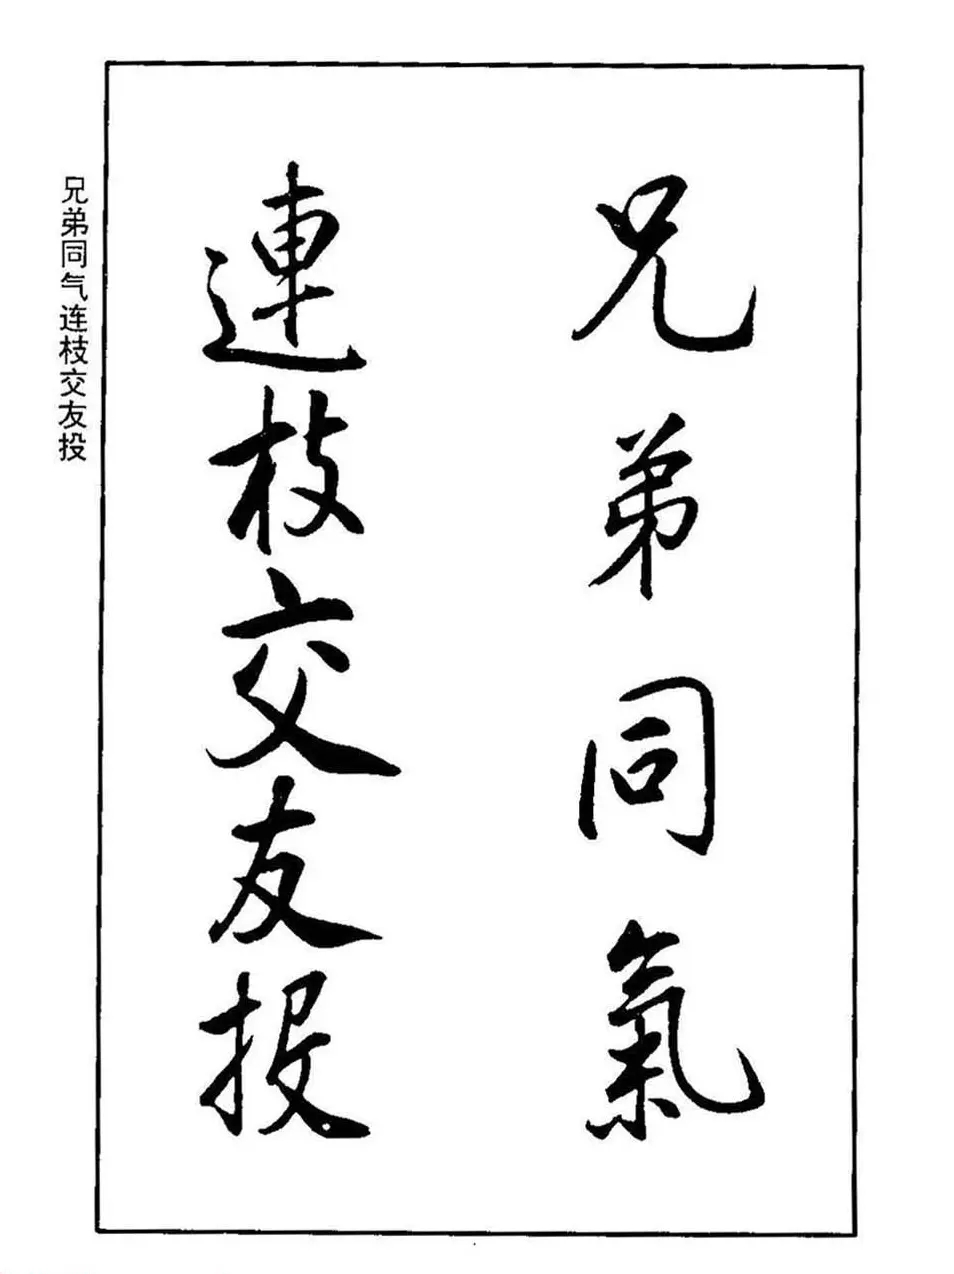 兄弟同氣
連枝交友投
兄弟同气连枝交友投